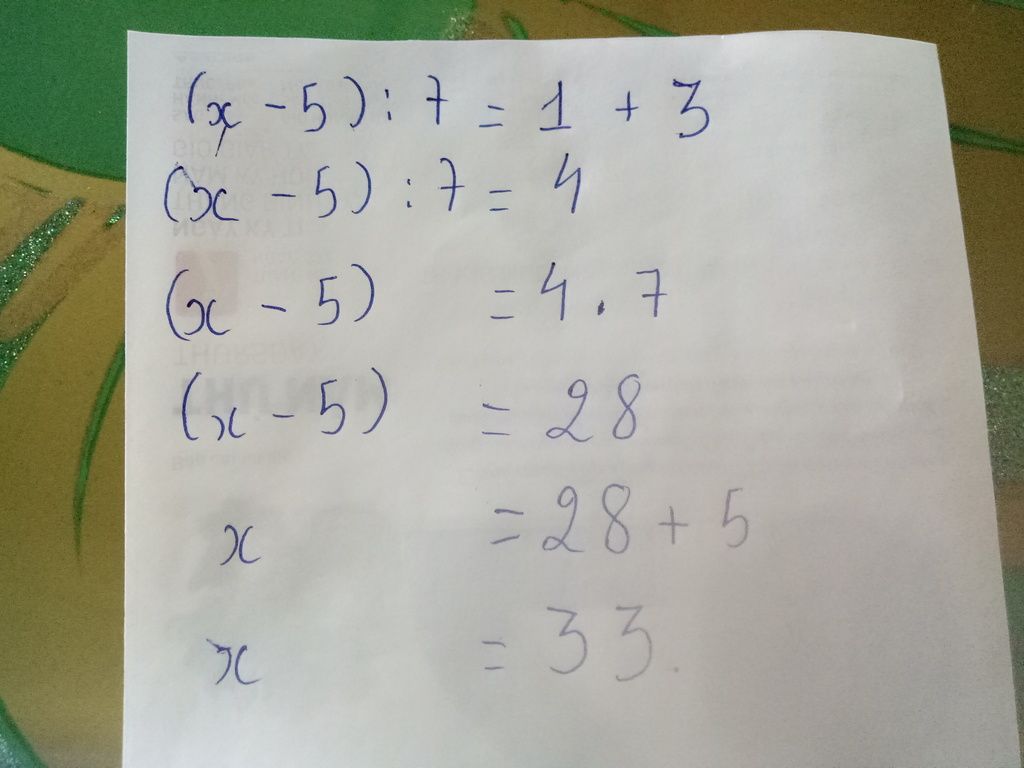 (x - 5) : 7 = 1 + 3
(x - 5) : 7 = 4
(x - 5) = 4 . 7
(x - 5) = 28
x = 28 + 5
x = 33.